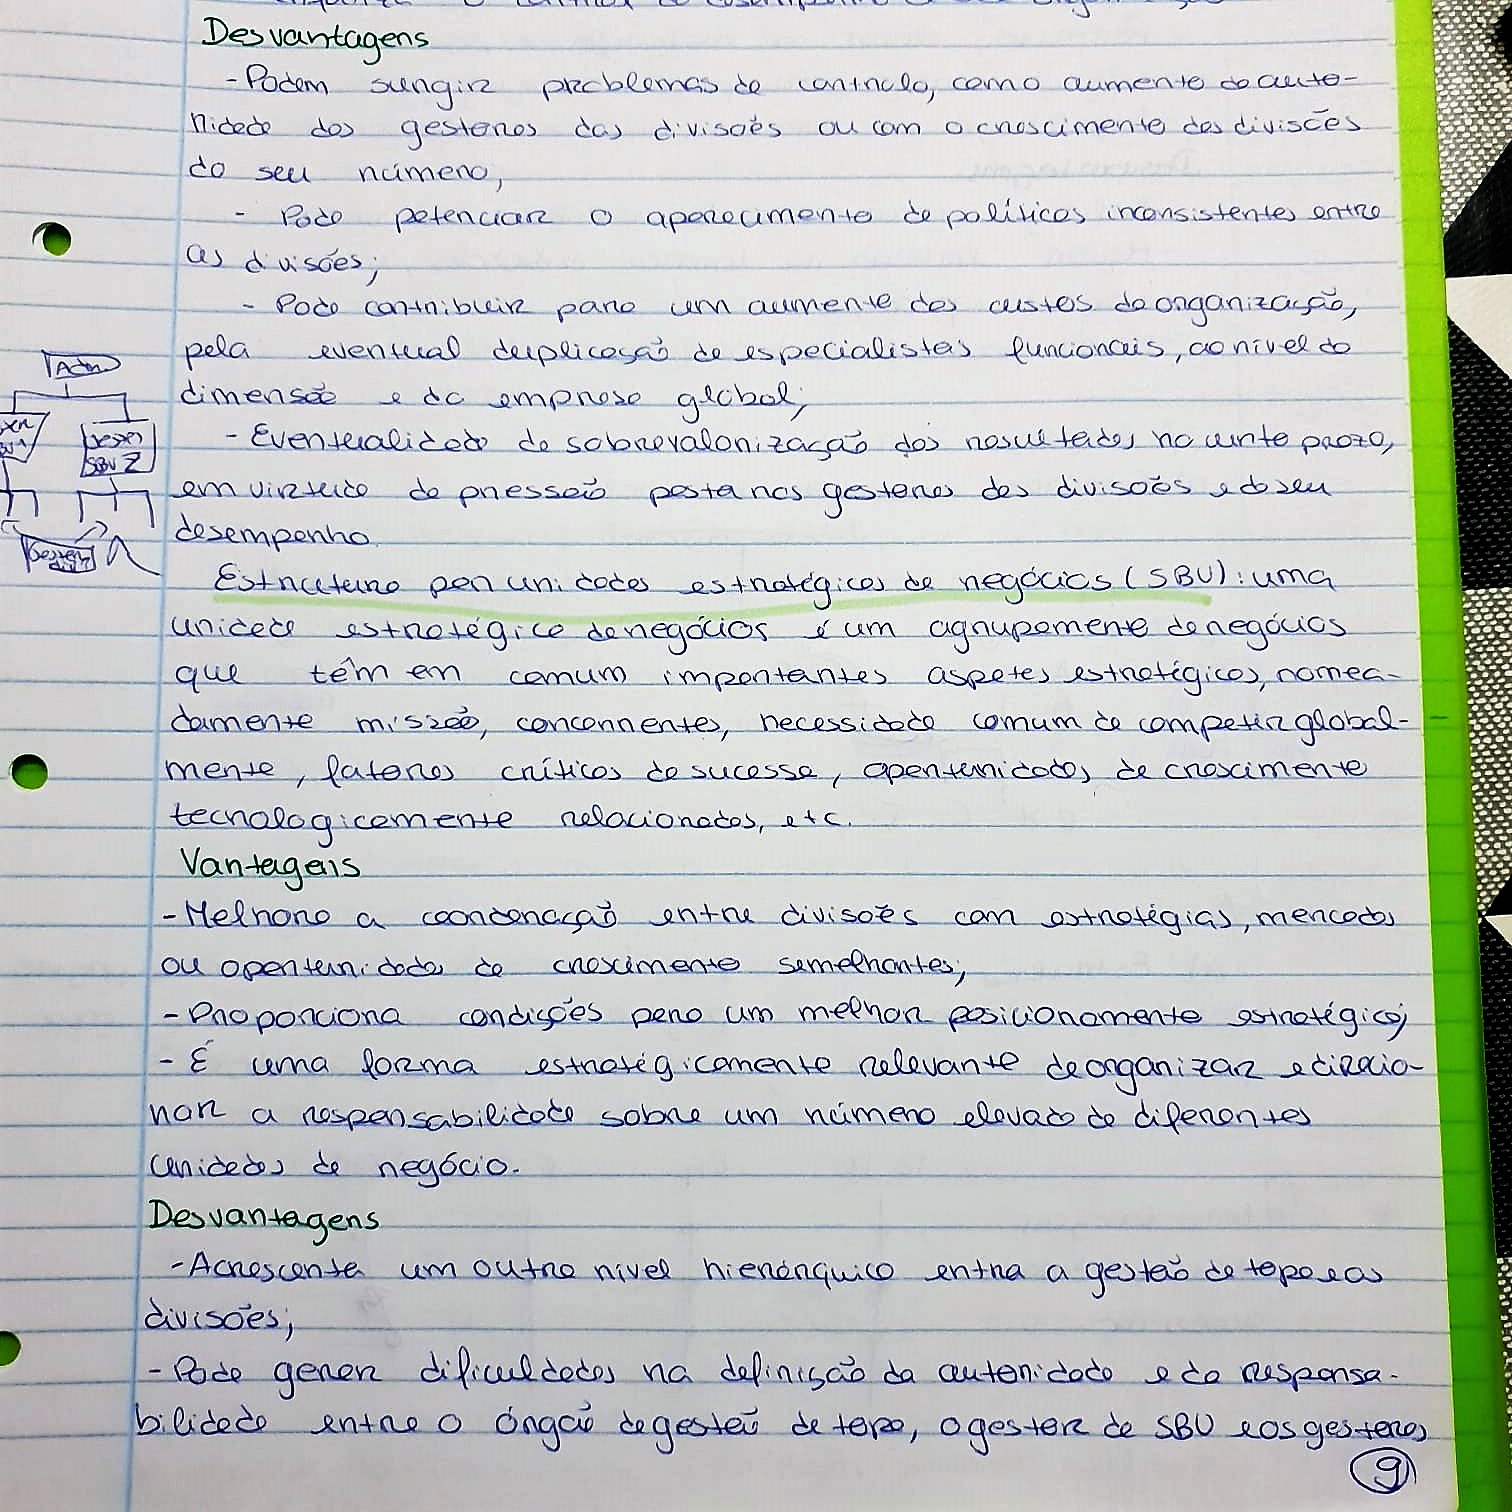 Desvantagens
- Podem surgir problemas de controlo, como aumento da auto-
ridade dos gestores das divisões ou com o crescimento das divisões
do seu número;
- Pode potenciar o aparecimento de políticas inconsistentes entre
as divisões;
- Pode contribuir para um aumento dos custos da organização,
pela eventual duplicação de especialistas funcionais, ao nível da
dimensão e da empresa global;
- Eventualidade de sobrevalorização dos resultados no curto prazo,
em virtude da pressão posta nos gestores das divisões e do seu
desempenho.
Adm
SBU 2
Estrutura por unidades estratégicas de negócios (SBU): uma
unidade estratégica de negócios é um agrupamento de negócios
que têm em comum importantes aspetos estratégicos, nomea-
damente missão, concorrentes, necessidade comum de competir global-
mente, fatores críticos de sucesso, oportunidades de crescimento
tecnologicamente relacionados, etc.
Vantagens
- Melhora a coordenação entre divisões com estratégias, mercados
ou oportunidades de crescimento semelhantes;
- Proporciona condições para um melhor posicionamento estratégico;
- É uma forma estratégicamente relevante de organizar e direcio-
nar a responsabilidade sobre um número elevado de diferentes
unidades de negócio.
Desvantagens
- Acrescenta um outro nível hierárquico entra a gestão de topo e as
divisões;
- Pode gerar dificuldades na definição da autoridade e da responsa-
bilidade entre o órgão de gestão de topo, o gestor de SBU e os gestores
9